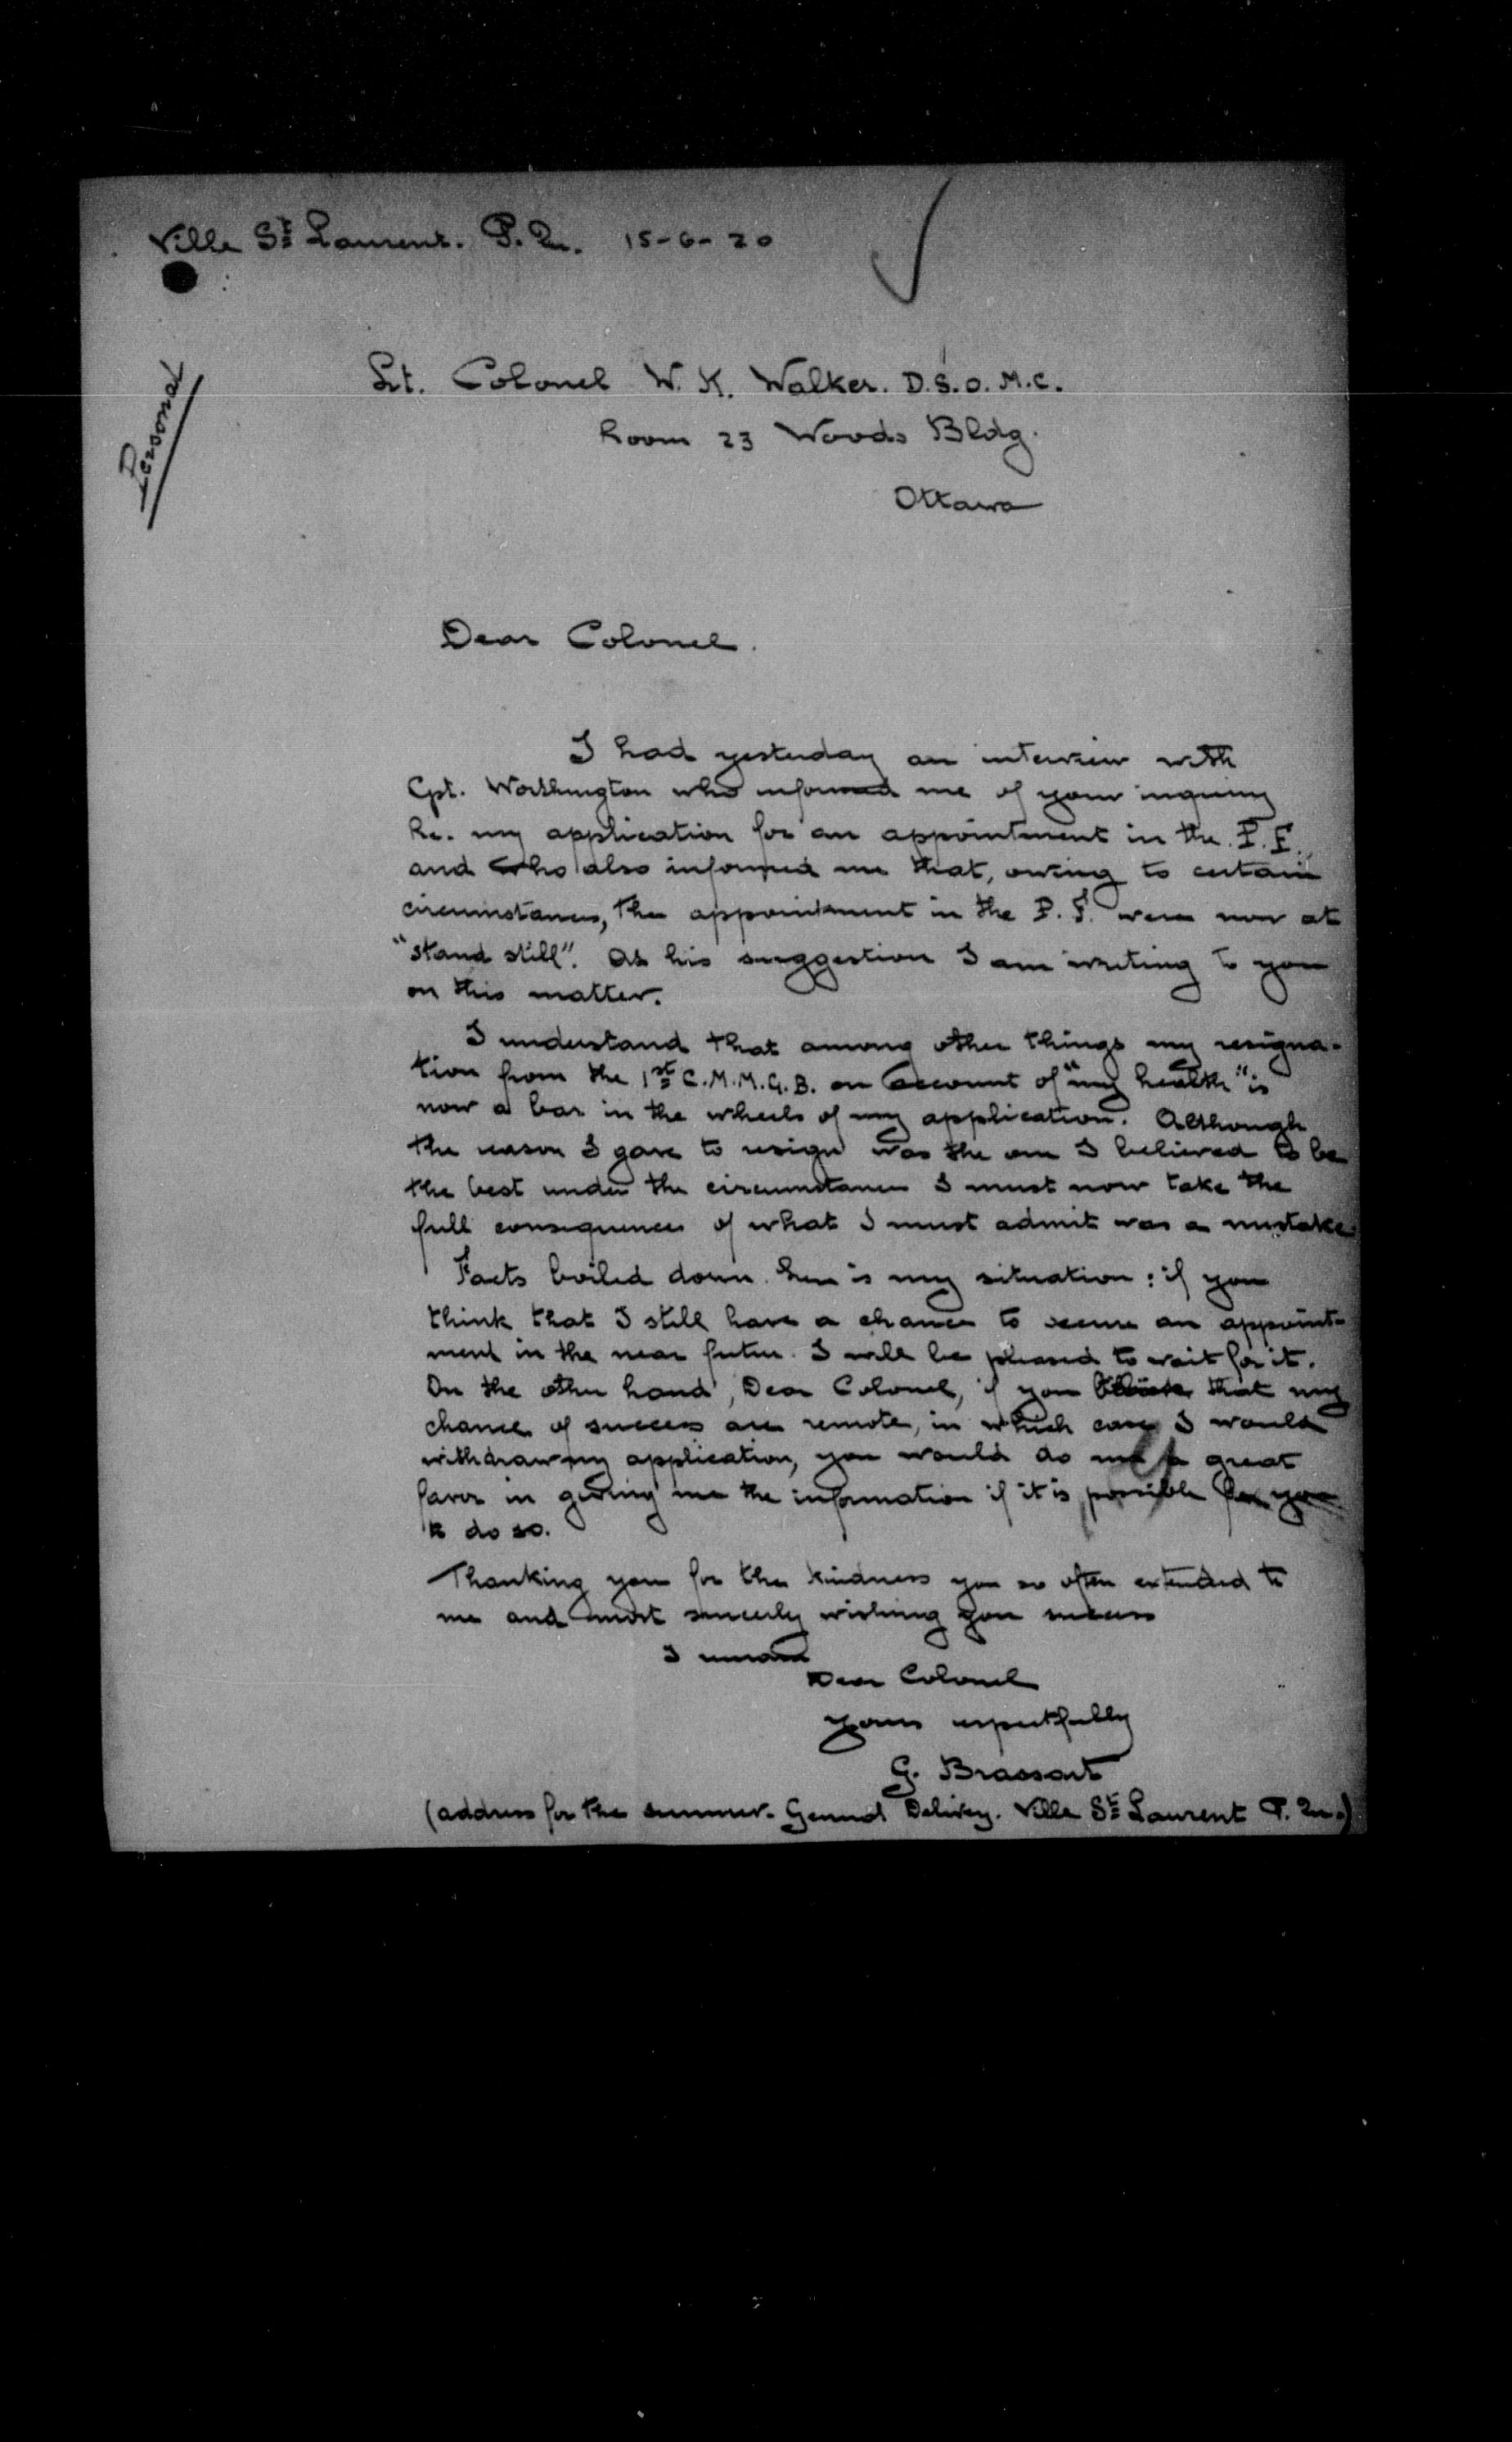 Ville St Laurent. P. Qu. 15-6-20
Personal
Lt. Colonel W. K. Walker. D.S.O. M.C.
Room 23 Woods Bldg.
Ottawa
Dear Colonel.
I had yesterday an interview with
Cpt. Worthington who informed me of your inquiry
Re. my application for an appointment in the P.F.,
and who also informed me that, owing to certain
circumstances, the appointment in the P.F. were now at
"stand still". At his suggestion I am writing to you
on this matter.
I understand that among other things my resigna-
tion from the 1st C.M.M.G.B. on account of "my health" is
now a bar in the wheels of my application. Although
the reason I gave to resign was the one I believed to be
the best under the circumstances I must now take the
full consequences of what I must admit was a mistake.
Facts boiled down. Here is my situation: if you
think that I still have a chance to secure an appoint-
ment in the near futur. I will be pleased to wait for it.
On the other hand, Dear Colonel, if you think that my
chances of success are remote, in which case I would
withdraw my application, you would do me a great
favor in giving me the information if it is possible for you
to do so.
Thanking you for the kindness you so often extended to
me and most sincerly wishing you success
I remain
Dear Colonel
yours respectfully
G. Brassart
(address for the summer. General Delivery. Ville St Laurent P. Qu.)